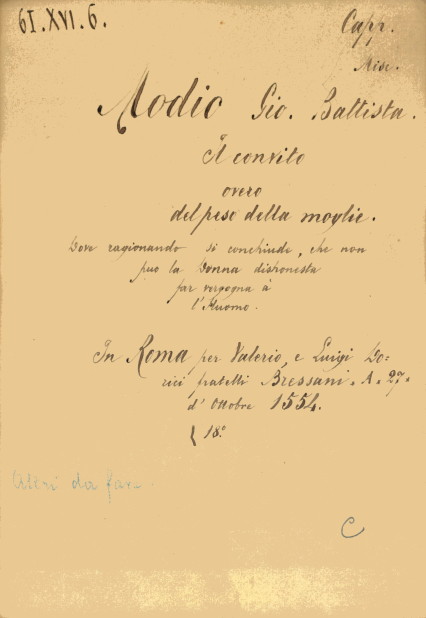 61.XVI.6.
Capp.
Misc.
Modio Gio. Battista.
Il convito
overo
del peso della moglie.
Dove ragionando si conchiude, che non
puo la Donna dishonesta
far vergogna à
l'Huomo.
In Roma per Valerio, e Luigi Do=
rici fratelli Bressani. A. 27.
d'Ottobre 1554.
8°
da far
C